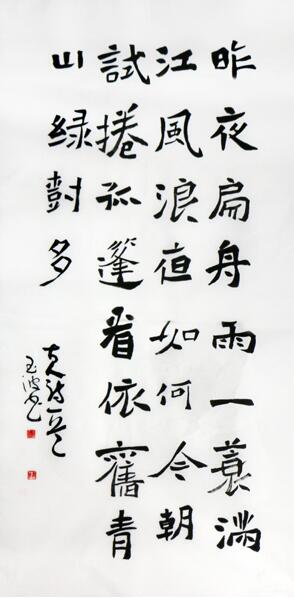 昨夜扁舟雨一蓑滿
江風浪夜如何今朝
試捲孤篷看依舊青
山綠樹多